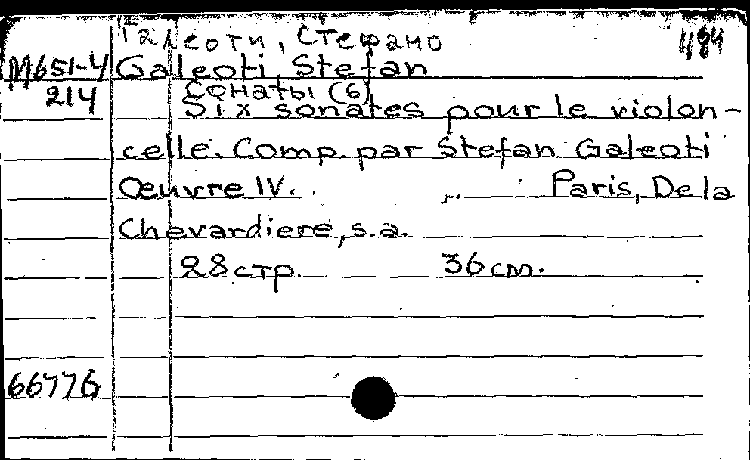 Галеоти, Стефано
M651-4 Galeoti Stefan
214 Сонаты (6)
Six sonates pour le violon-
celle. Comp. par Stefan Galeoti
Œuvre IV. Paris, De la
Chevardiere, s.a.
28 стр. 36 cm.
66776